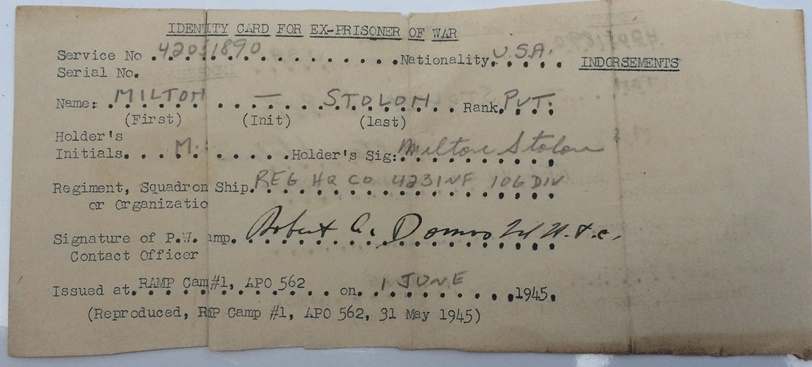 IDENTITY CARD FOR EX-PRISONER OF WAR
Service No 42051890 Nationality. U.S.A.
INDORSEMENTS
Serial No.
Name: MILTON — STOLON Rank. PVT.
(First) (Init) (last)
Holder's
Initials. M. Holder's Sig: Milton Stolon
Regiment, Squadron Ship. REG HQ CO 423 INF 106 DIV
or Organizatio
Signature of P.W. amp. Robert A.
Contact Officer
Issued at. RAMP Cam #1, APO 562 on. 1 JUNE 1945.
(Reproduced, RMP Camp #1, APO 562, 31 May 1945)